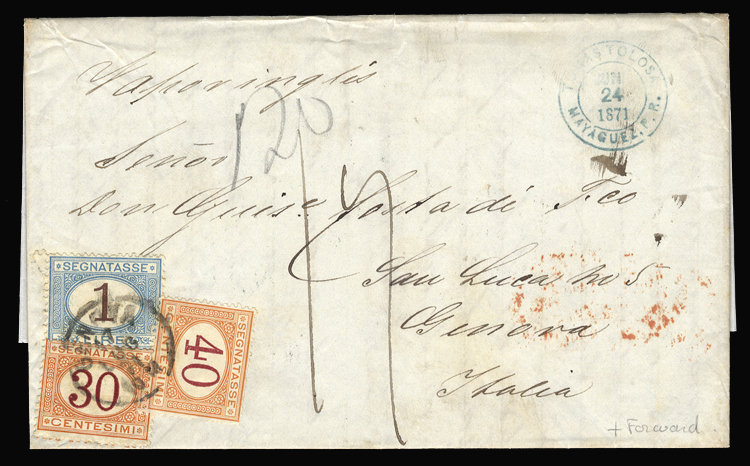 TOLOSA
JUN
24
1871
MAYAGUEZ, P. R.
Vapor inglés
120
Señor
Don Guise. Costa di Fco
San Luca no 5
Genova
Italia
SEGNATASSE
1
LIRE
SEGNATASSE
30
CENTESIMI
SEGNATASSE
40
CENTESIMI
+ Forward